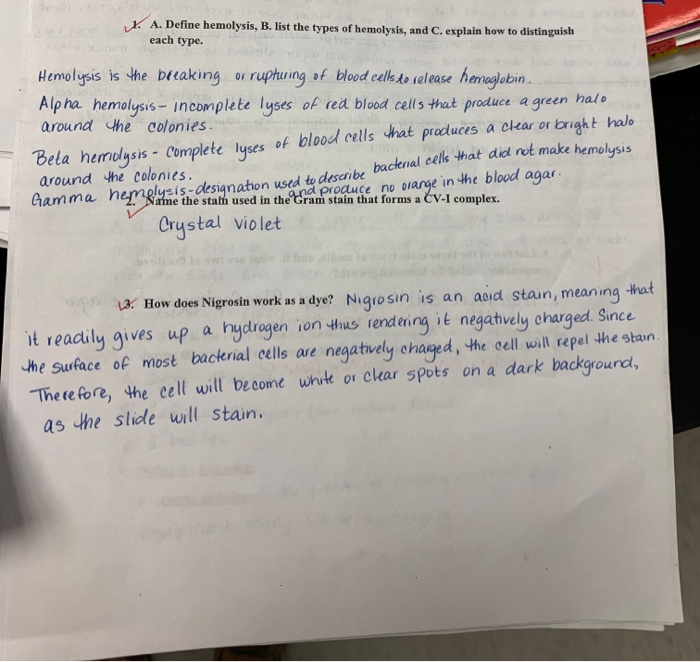 1. A. Define hemolysis, B. list the types of hemolysis, and C. explain how to distinguish
each type.
Hemolysis is the breaking or rupturing of blood cells to release hemoglobin.
Alpha hemolysis - incomplete lyses of red blood cells that produce a green halo
around the colonies.
Beta hemolysis - Complete lyses of blood cells that produces a clear or bright halo
around the colonies.
Gamma hemolysis - designation used to describe bacterial cells that did not make hemolysis
and produce no orange in the blood agar.
2. Name the stain used in the Gram stain that forms a CV-I complex.
Crystal violet
3. How does Nigrosin work as a dye? Nigrosin is an acid stain, meaning that
it readily gives up a hydrogen ion thus rendering it negatively charged. Since
the surface of most bacterial cells are negatively charged, the cell will repel the stain.
Therefore, the cell will become white or clear spots on a dark background,
as the slide will stain.